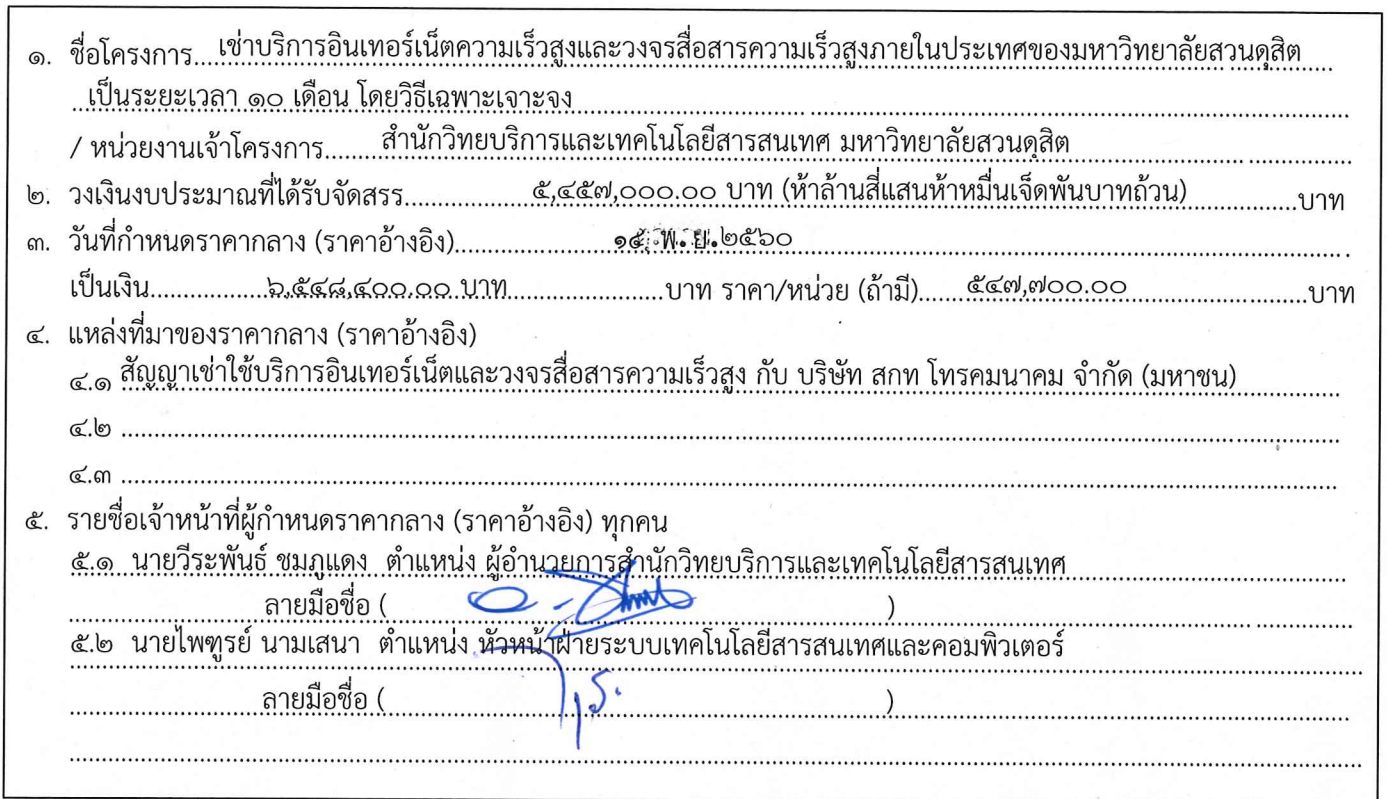 ๑. ชื่อโครงการ....เช่าบริการอินเทอร์เน็ตความเร็วสูงและวงจรสื่อสารความเร็วสูงภายในประเทศของมหาวิทยาลัยสวนดุสิต
เป็นระยะเวลา ๑๐ เดือน โดยวิธีเฉพาะเจาะจง
/ หน่วยงานเจ้าโครงการ........สำนักวิทยบริการและเทคโนโลยีสารสนเทศ มหาวิทยาลัยสวนดุสิต
๒. วงเงินงบประมาณที่ได้รับจัดสรร..................๕,๔๕๗,๐๐๐.๐๐ บาท (ห้าล้านสี่แสนห้าหมื่นเจ็ดพันบาทถ้วน)................บาท
๓. วันที่กำหนดราคากลาง (ราคาอ้างอิง)......................๑๕ พ.ย.๒๕๖๐
เป็นเงิน..................๖,๕๔๘,๔๐๐.๐๐ บาท......................บาท ราคา/หน่วย (ถ้ามี)......๕๔๗,๗๐๐.๐๐..........................บาท
๔. แหล่งที่มาของราคากลาง (ราคาอ้างอิง)
๔.๑ สัญญาเช่าใช้บริการอินเทอร์เน็ตและวงจรสื่อสารความเร็วสูง กับ บริษัท สกท โทรคมนาคม จำกัด (มหาชน)
๔.๒ ..........
๔.๓ ..........
๕. รายชื่อเจ้าหน้าที่ผู้กำหนดราคากลาง (ราคาอ้างอิง) ทุกคน
๕.๑ นายวีระพันธ์ ชมภูแดง ตำแหน่ง ผู้อำนวยการสำนักวิทยบริการและเทคโนโลยีสารสนเทศ
ลายมือชื่อ ( )
๕.๒ นายไพฑูรย์ นามเสนา ตำแหน่ง หัวหน้าฝ่ายระบบเทคโนโลยีสารสนเทศและคอมพิวเตอร์
ลายมือชื่อ ( )